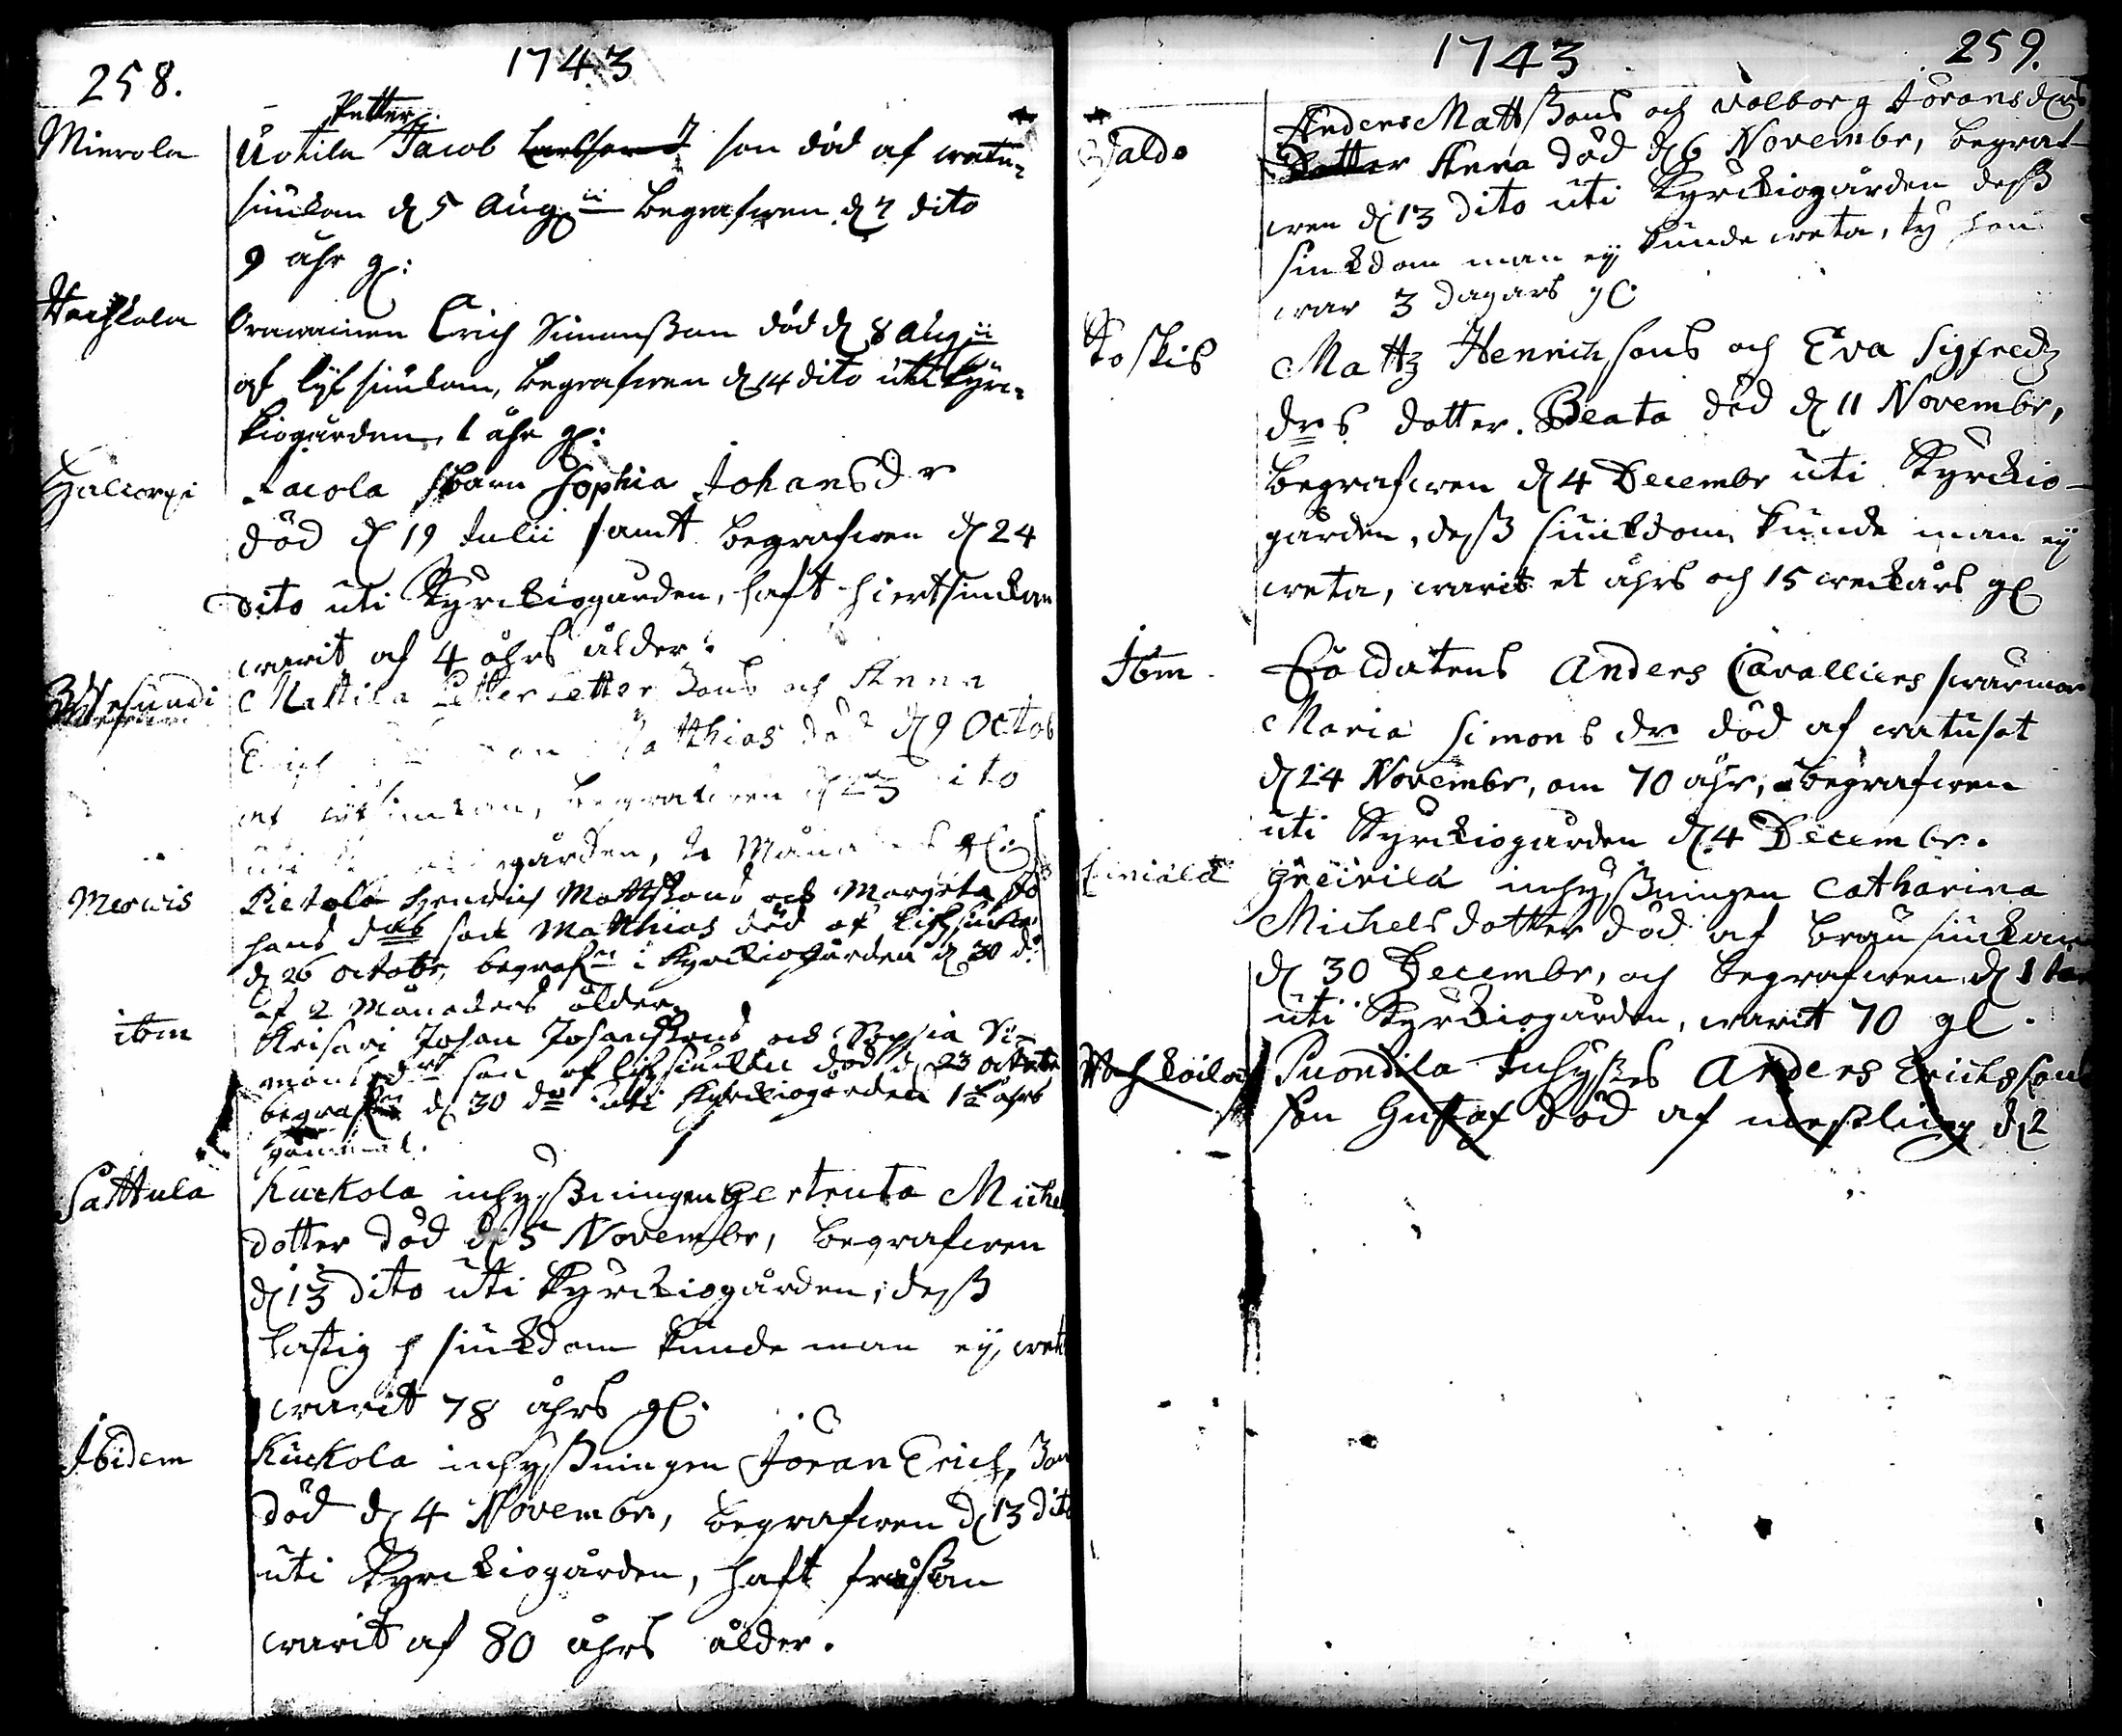 258.
1743
Petter
Mierola Uotila Jacob son död af wattu-
siukan d 5 Augii begrafwen d 7 dito
9 åhr gl:
Orawainen Erich Simonsson död d 8 Augii
af lijfsiukan, begrafwen d 14 dito uti Kyrc-
kiogården, 1 åhr gl:
Jacola sbarn Sophia Johansdr
död d 19 Julii samt begrafwen d 24
dito uti Kyrckiogården, haft hiertsiukan
warit af 4 åhrs ålder.
Mattila Petter Petterssons och Anna
Matthias död d 9 Octob
siukan, begrafwen d 23 dito
uti gården, Månaders gl:
Merwis Pietola Hendrich Mattssons och Margeta Jo
hans drs son Matthias död af lifsiukan
d 26 octobr, begrafn i Kyrckiogården d 30 d:
af 2 Månaders ålder.
ibm Krisari Johan Johanssons och Sophia Si-
mons drs son af lifsiukan död d 23 octobr
begrafn d 30 do uti Kyrckiogården 1 åhrs
gammal.
Sattula Kuckola inhyssningen Gertruta Michels
dotter död d 5 Novembr, begrafwen
d 13 dito uti Kyrckiogården, dess
hastig siukdom kunde man ej weta
warit 78 åhrs gl.
Ibidem Kuckola inhyssningen Jöran Erichsson
död d 4 Novembr, begrafwen d 13 dito
uti Kyrckiogården, haft frässan
warit af 80 åhrs ålder.
1743
259.
Anders Mattssons och Valborg Jöransdrs
dotter Anna död d 6 Novembr, begraf-
wen d 13 dito uti Kyrckiogården dess
siukdom man ej kunde weta, ty hon
war 3 dagars gl.
Toskis Mattz Henrichsons och Eva Sigfredz
drs dotter Beata död d 11 Novembr,
begrafwen d 4 Decembr uti Kyrckio-
gården, dess siukdom kunde man ej
weta, warit et åhrs och 15 weckårs gl
Ibm. Soldatens Anders Cavalliers swärmor
Maria Simons dr död af watusot
d 24 Novembr, om 70 åhr, begrafwen
uti Kyrckiogården d 4 Decembr.
inhyssningen Catharina
Michelsdotter död af bräsiukan
d 30 Decembr, och begrafwen d 1 Jan
uti Kyrckiogården, warit 70 gl.
Puondila Inhysses Anders Erichssons
son Gustaf död af mesling d 2